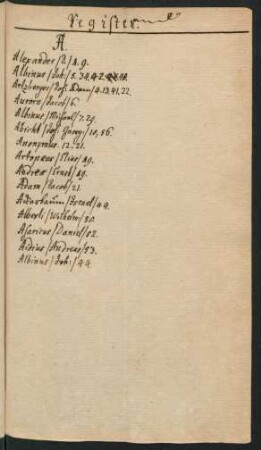 Register.
A.
Alexander /D./ 4. 9.
Albinus /Joh:/ 5. 30.
Artzberger /Joh. Adam/ 4. 13. 41. 22.
Aurora /Jacob/ 6.
Albinus /Michael/ 7. 29.
Abicht /Joh. Georg/ 10, 56.
Anonymus. 12. 21.
Artopœus /Elias/ 19.
Andreæ /Ernst/ 49.
Adam /Jacob/ 21.
/ 44.
Alberti /Wilhelm/ 50.
Asaricus /Daniel/ 52.
Aidius /Andreas/ 53.
Albinus /Joh:/ 44.